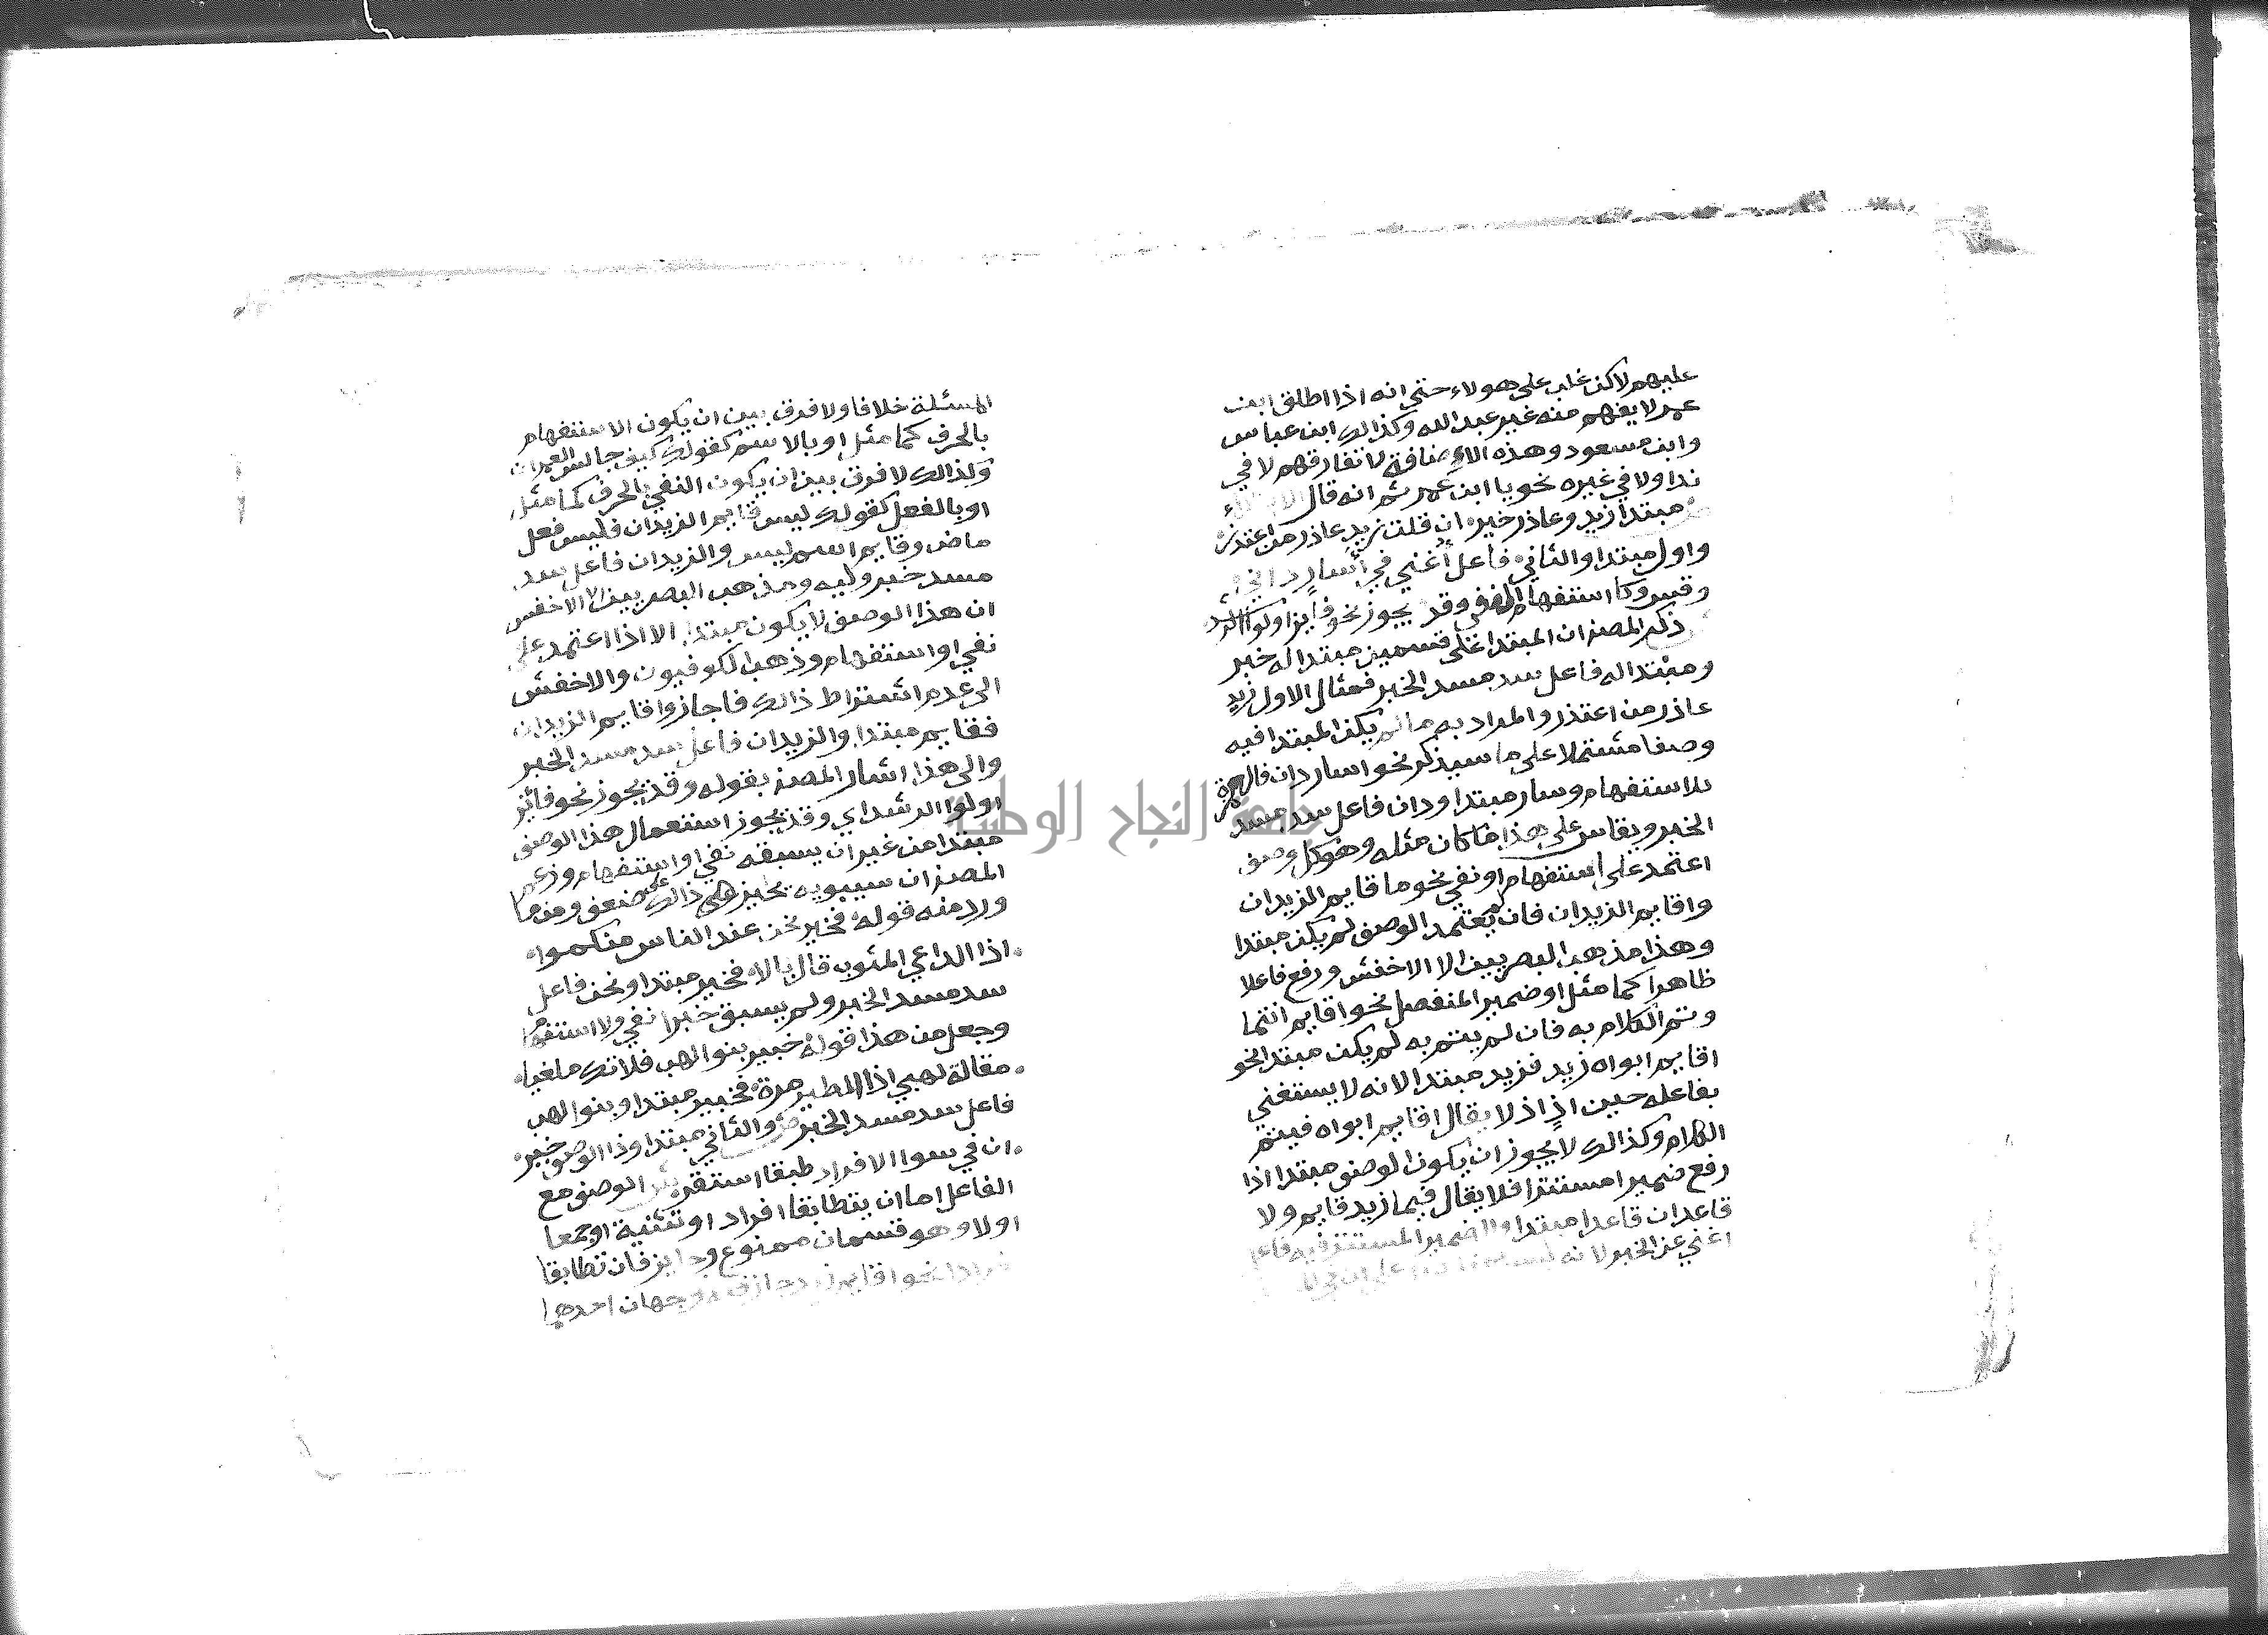 عليهم لاكن غلب على هولاء حتى انه اذا اطلق ابن
عمر لا يفهم منه غير عبد الله وكذالك ابن عباس
وابن مسعود وهذه الاضافة لا تفارقهم لا في
ندا ولا في غيره نحو يا ابن عمر ثم انه قال
مبتدا زيد وعاذر خبر ان قلت زيد عاذر من اعتذر
واول مبتدا والثاني فاعل اغني في اسار
وقس وكاستفهام النفي وقد يجوز نحو فايز اولوا الرشد
ذكر المصنف ان المبتدا على قسمين مبتدا له خبر
ومبتدا له فاعل سد مسد الخبر فمثال الاول زيد
عاذر من اعتذر والمراد به ما لم يكن المبتدا فيه
وصفا مشتملا على ما سيذكر نحو اسار دان فالهمزة
للاستفهام وسار مبتدا ودان فاعل سد مسد
الخبر ويقاس على هذا ما كان مثله وهو كل وصف
اعتمد على استفهام او نفي نحو ما قايم الزيدان
واقايم الزيدان فان لم يعتمد الوصف لم يكن مبتدا
وهذا مذهب البصريين الا الاخفش ورفع فاعلا
ظاهرا كما مثل او ضمير المنفصل نحو اقايم انتما
وتم الكلام به فان لم يتم به لم يكن مبتدا نحو
اقايم ابواه زيد فزيد مبتدا لانه لا يستغني
بفاعله حين اذ اذ لا يقال اقايم ابواه فيتم
الكلام وكذالك لا يجوز ان يكون الوصف مبتدا اذا
رفع ضميرا مستترا فلا يقال فيما زيد قايم ولا
قاعد ان قاعدا مبتدا والضمير المستتر فيه فاعل
اغني عن الخبر لانه ليس
المسئلة خلافا ولا فرق بين ان يكون الاستفهام
بالحرف كما مثل او بالاسم كقولك كيف جالس العمران
وكذالك لا فرق بين ان يكون النفي بالحرف كما مثل
او بالفعل كقولك ليس قايم الزيدان فليس فعل
ماض وقايم اسم ليس والزيدان فاعل سد
مسد خبر وليه ومذهب البصريين الا الاخفش
ان هذا الوصف لا يكون مبتدا الا اذا اعتمد على
نفي او استفهام وذهب الكوفيون والاخفش
الى عدم اشتراط ذالك فاجازوا قايم الزيدان
فقايم مبتدا والزيدان فاعل سد مسد الخبر
والى هذا اشار المصنف بقوله وقد يجوز نحو فائز
اولوا الرشد اي وقد يجوز استعمال هذا الوصف
مبتدا من غير ان يسبقه نفي او استفهام وزعم
المصنف ان سيبويه يجيز هي ذالك على ضعف ومما
ورد منه قوله فخير نحن عند الناس منكموا
اذا الداعي المثوب قال يالا فخير مبتدا ونحن فاعل
سد مسد الخبر ولم يسبق خبرا نفي ولا استفهام
وجعل من هذا قوله خبير بنوا لهب فلا تك ملغيا
مقالة لهبي اذا المطير مرة فخبير مبتدا وبنوا لهب
فاعل سد مسد الخبر والثاني مبتدا وذا الوصف خبر
ان في سوا الافراد طبقا استقر الوصف مع
الفاعل اما ان يتطابقا افراد او تثنية او جمعا
اولا وهو قسمان ممنوع وجايز فان تطابقا
نحو اقايم زيد جاز فيه وجهان احدهما
جامعة النجاح الوطنية